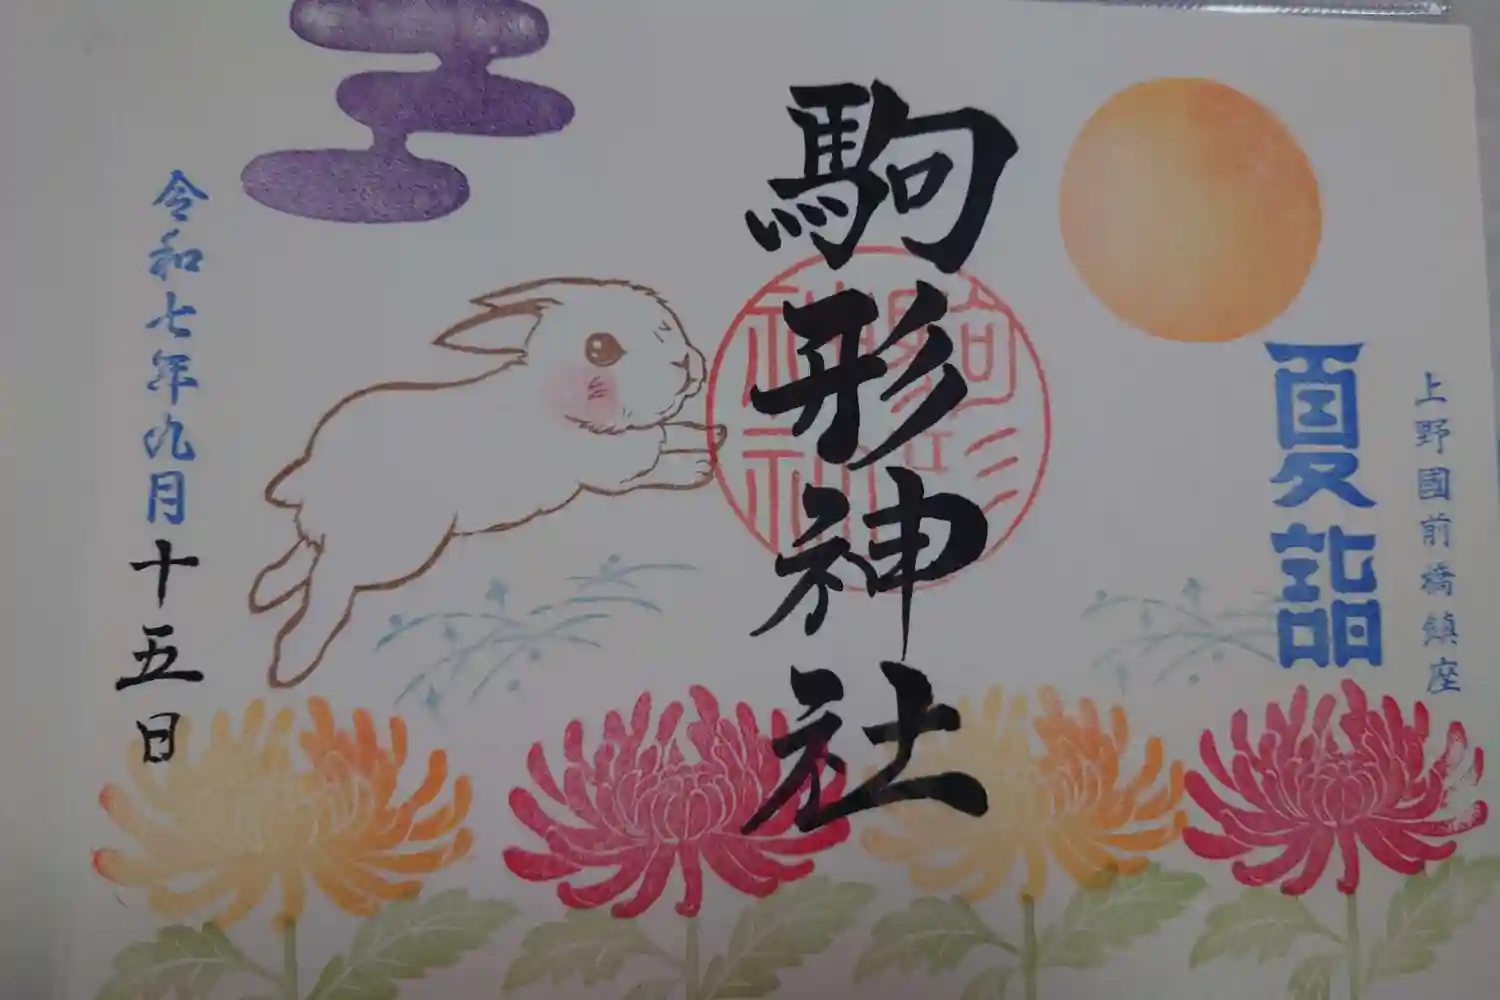 上野國前橋鎮座
夏詣
駒形神社
令和七年九月十五日